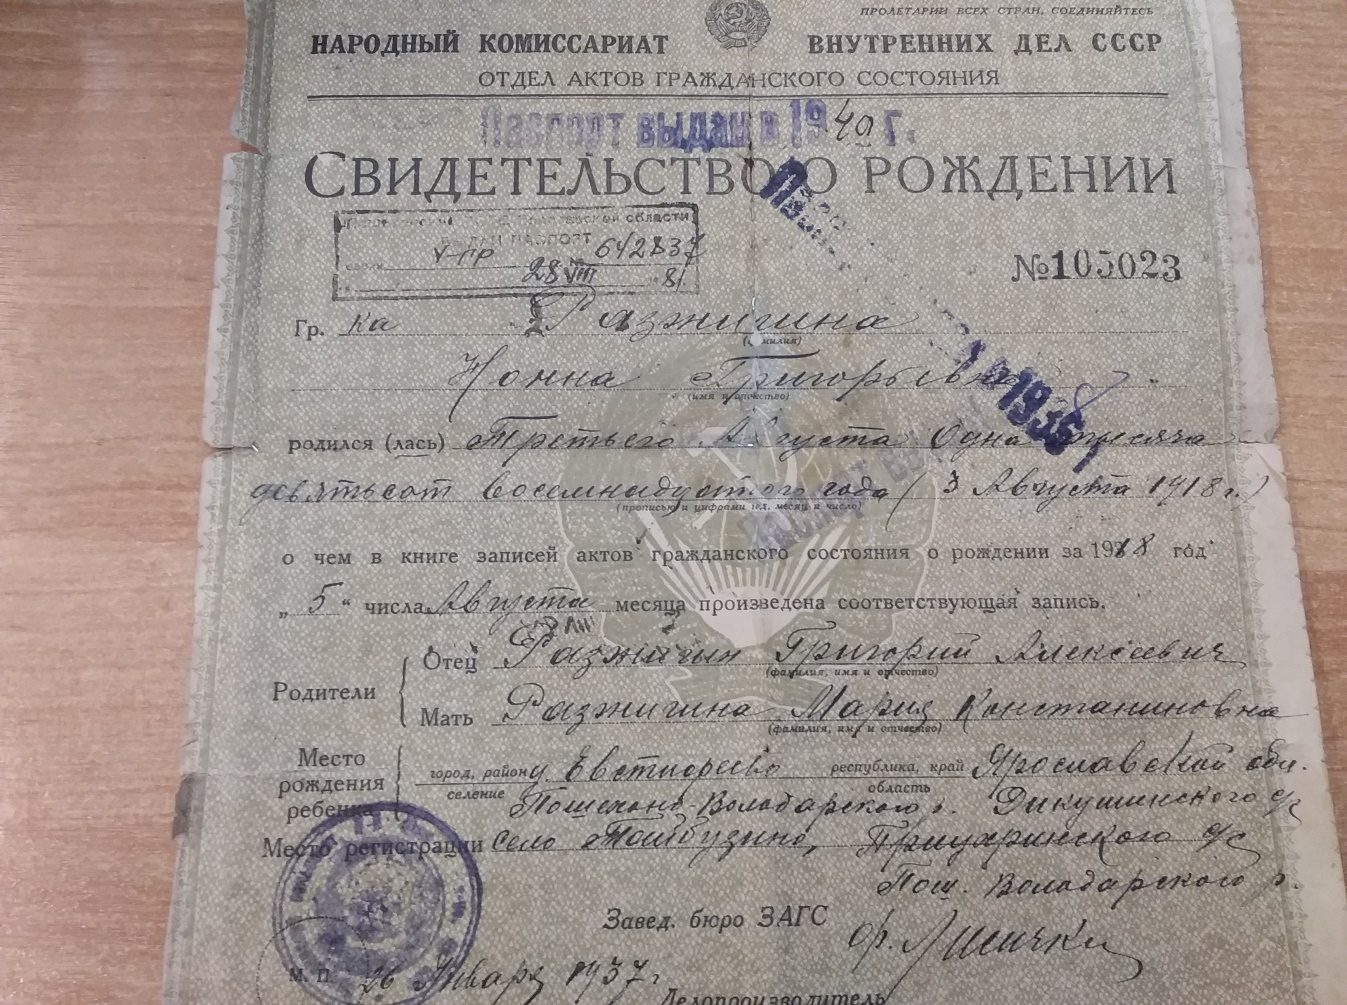 ПРОЛЕТАРИИ ВСЕХ СТРАН, СОЕДИНЯЙТЕСЬ
НАРОДНЫЙ КОМИССАРИАТ ВНУТРЕННИХ ДЕЛ СССР
ОТДЕЛ АКТОВ ГРАЖДАНСКОГО СОСТОЯНИЯ
Паспорт выдан в 1940 г.
СВИДЕТЕЛЬСТВО О РОЖДЕНИИ
области
ПАСПОРТ
V-ПР № 642837
28 VIII 81
№105023
Гр. ка Разжигина
(фамилия)
Нонна Григорьевна
(имя и отчество)
1936
родился (лась) Третьего Августа Одна тысяча
девятьсот восемнадцатого года (3 Августа 1918 г.)
(прописью и цифрами год, месяц и число)
о чем в книге записей актов гражданского состояния о рождении за 1918 год
„ 5 “ числа Августа месяца произведена соответствующая запись.
Родители
Отец Разжигин Григорий Алексеевич
(фамилия, имя и отчество)
Мать Разжигина Мария Констаниновна
(фамилия, имя и отчество)
Место рождения ребенка
город, район д. республика, край Ярославской обл.
селение область
Пошехоно-Володарского р.
Место регистрации село
Пош. Володарского р.
Завед. бюро ЗАГС
М. П. 26 Января 1937 г.
Делопроизводитель